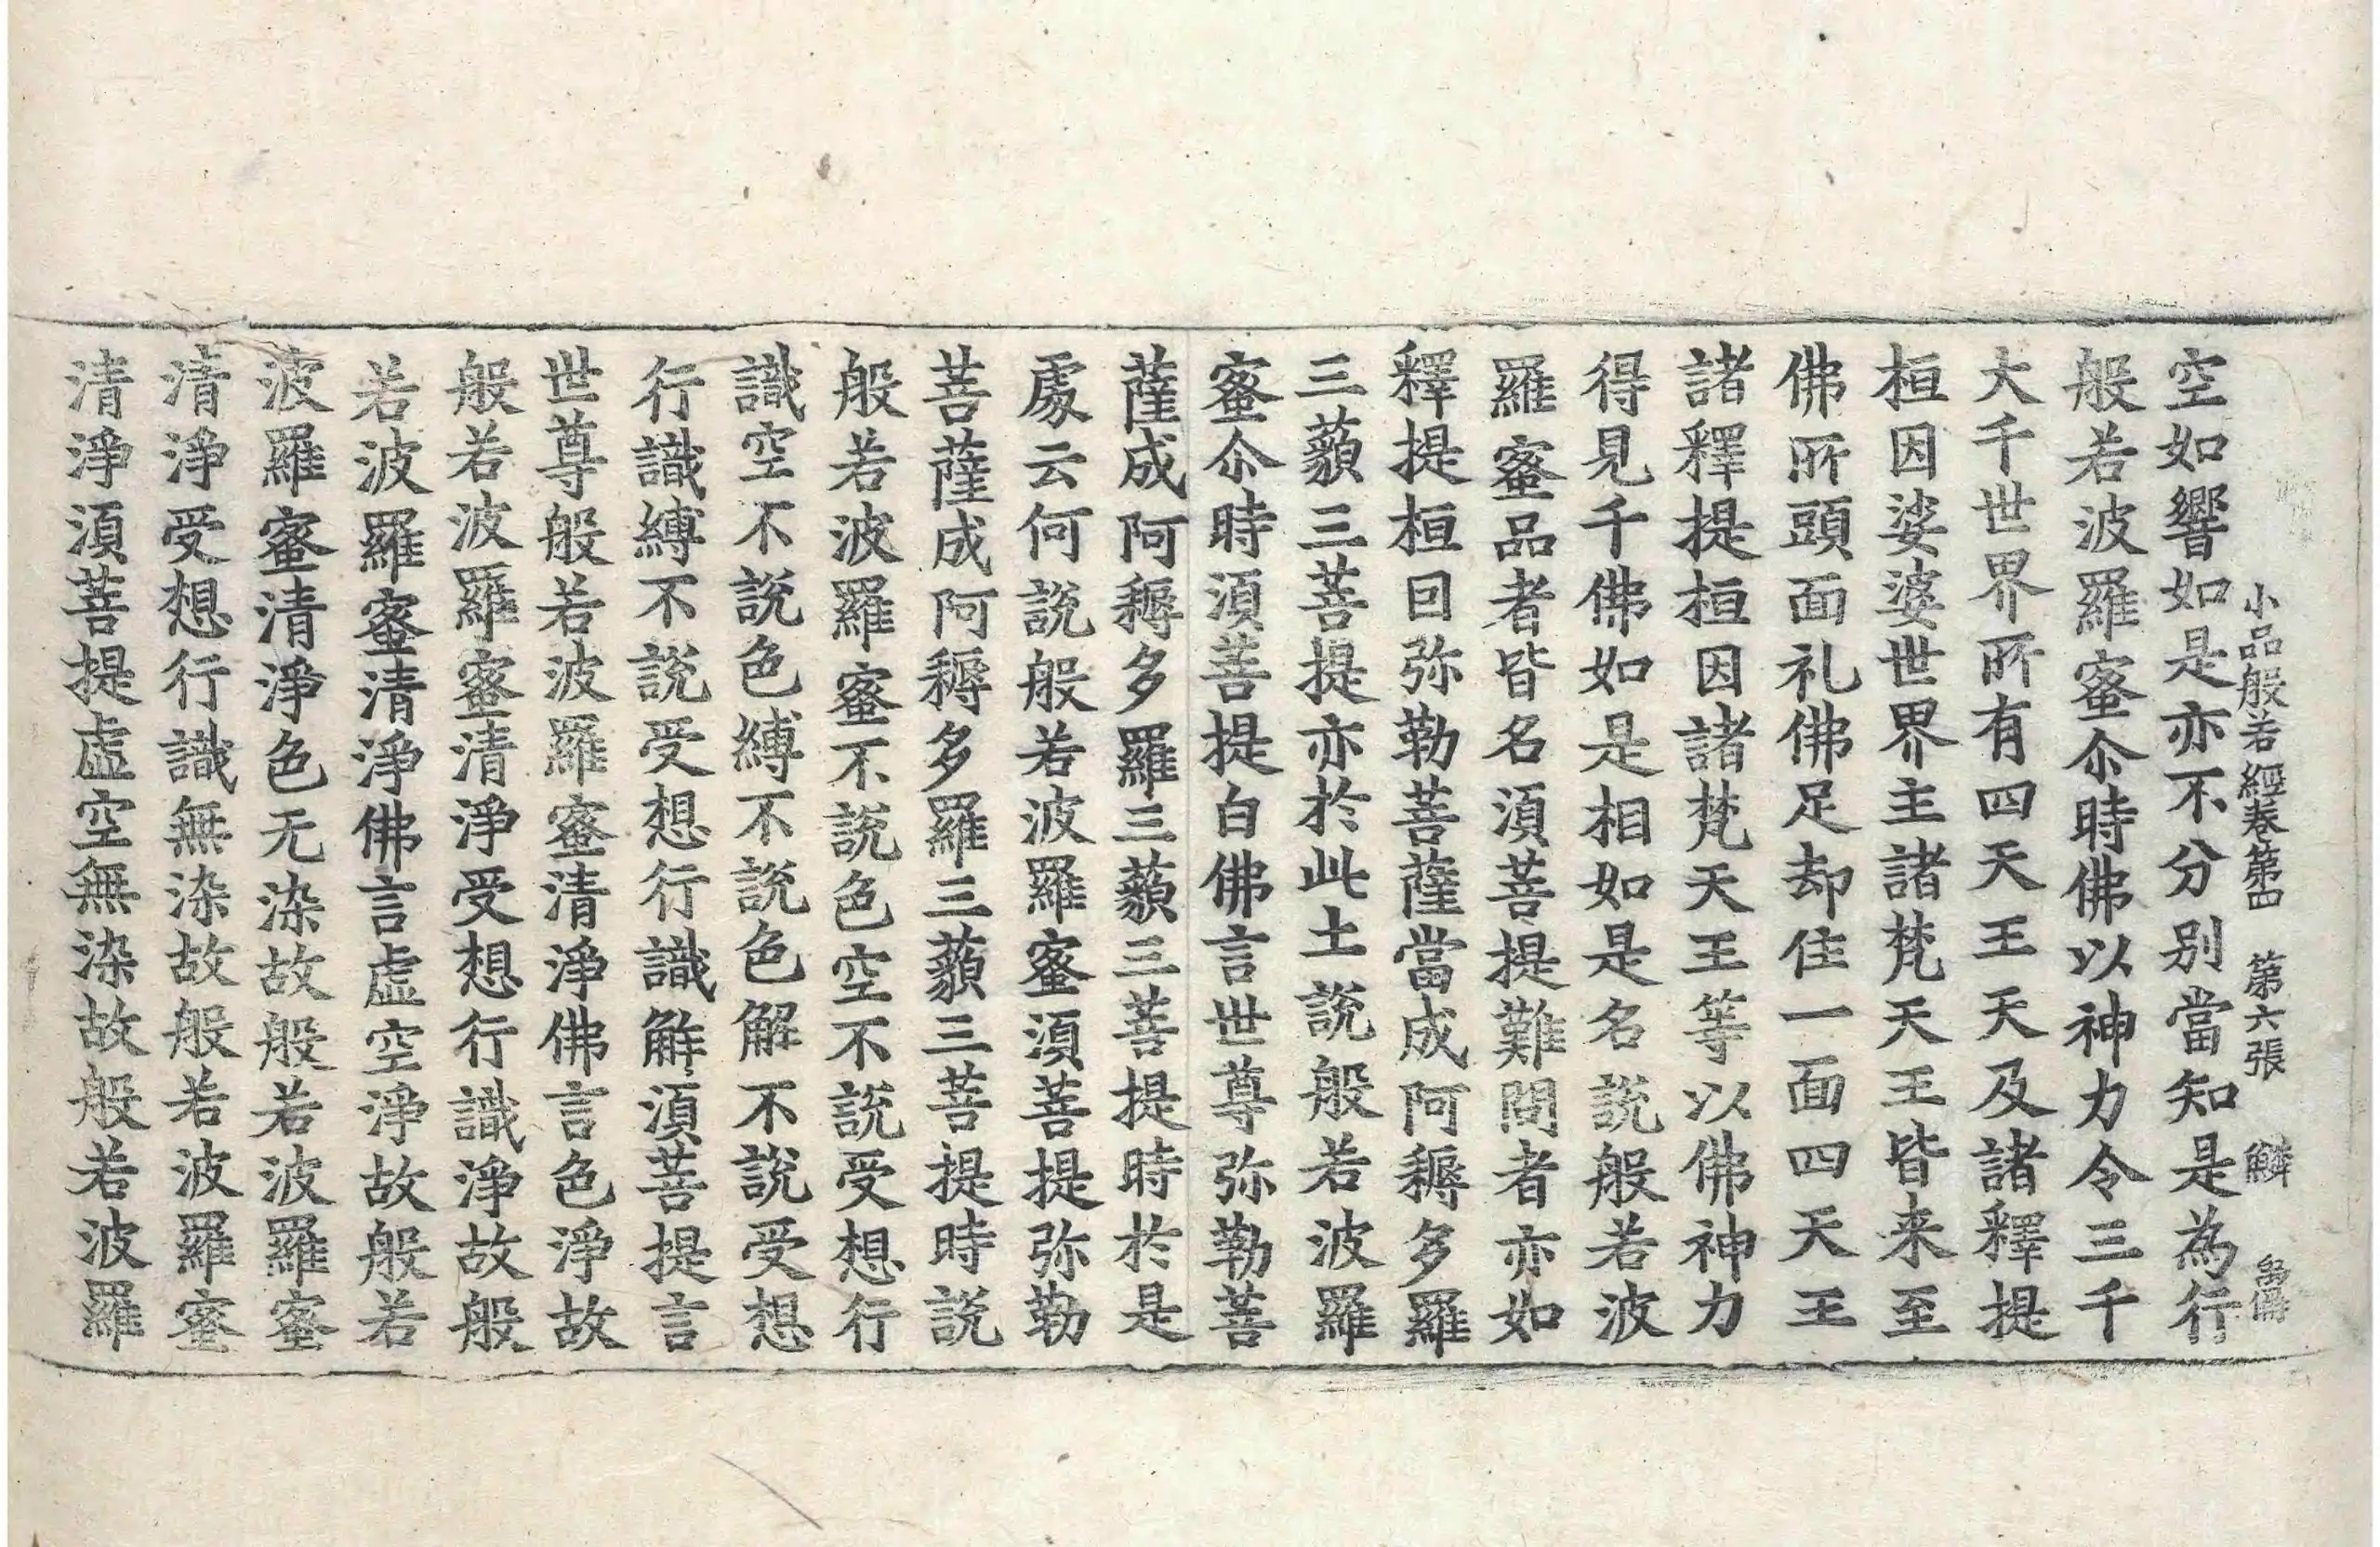 小品般若經卷第四 第六張 鱗
空如響如是亦不分別當知是為行
般若波羅蜜尒時佛以神力令三千
大千世界所有四天王天及諸釋提
桓因娑婆世界主諸梵天王皆来至
佛所頭面礼佛足却住一面四天王
諸釋提桓因諸梵天王等以佛神力
得見千佛如是相如是名說般若波
羅蜜品者皆名湏菩提難問者亦如
釋提桓囙弥勒菩薩當成阿耨多羅
三藐三菩提亦於此土說般若波羅
蜜尒時湏菩提白佛言世尊弥勒菩
薩成阿耨多羅三藐三菩提時於是
處云何說般若波羅蜜湏菩提弥勒
菩薩成阿耨多羅三藐三菩提時說
般若波羅蜜不說色空不說受想行
識空不說色縛不說色解不說受想
行識縛不說受想行識解湏菩提言
世尊般若波羅蜜清淨佛言色淨故
般若波羅蜜清淨受想行識淨故般
若波羅蜜清淨佛言虛空淨故般若
波羅蜜清淨色无染故般若波羅蜜
清淨受想行識無染故般若波羅蜜
清淨湏菩提虛空無染故般若波羅